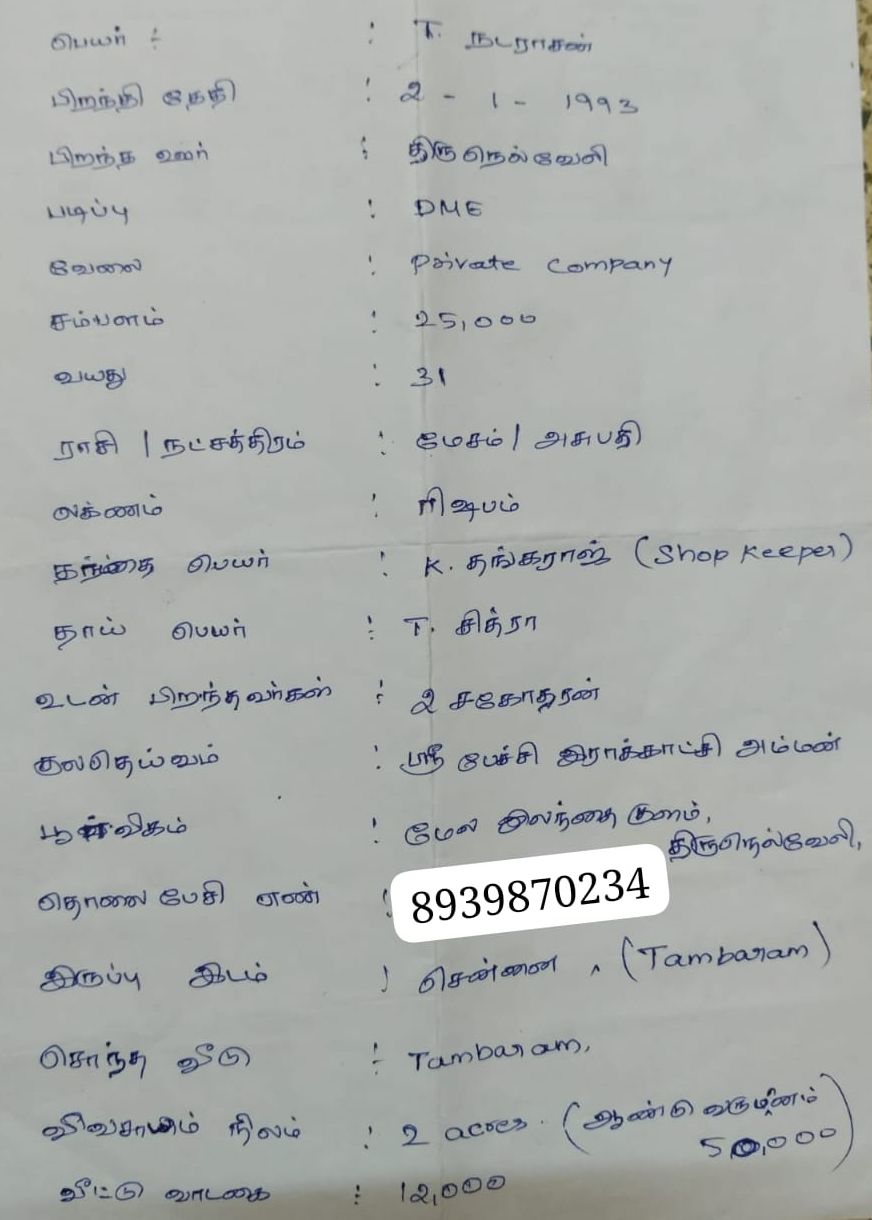 பெயர் : : T. நடராசன்
பிறந்தி தேதி : 2 - 1 - 1993
பிறந்த ஊர் : திருநெல்வேலி
படிப்பு : DME
வேலை : Private Company
சம்பளம் : 25,000
வயது : 31
ராசி | நட்சத்திரம் : மேசம் | அசுபதி
லக்ணம் : ரிஷபம்
தந்தை பெயர் : K. தங்கராஜ் (Shop Keeper)
தாய் பெயர் : T. சித்ரா
உடன் பிறந்தவர்கள் : 2 சகோதரன்
குலதெய்வம் : ஸ்ரீ பேச்சி இராக்காட்சி அம்மன்
பூர்விகம் : மேல இலந்தை குளம்,
திருநெல்வேலி,
தொலை பேசி எண் : 8939870234
இருப்பு இடம் : சென்னை , (Tambaram)
சொந்த வீடு : Tambaram,
விவசாயம் நிலம் : 2 acres. (ஆண்டு வருமானம்
50,000)
வீட்டு வாடகை : 12,000